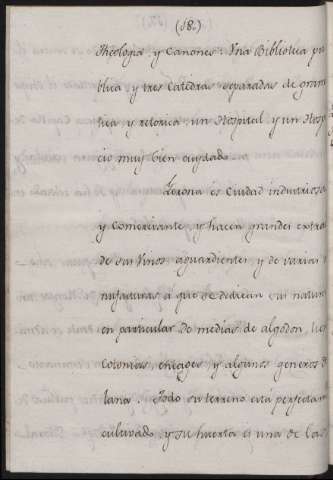 (18.)
Theologia, y Canones: Una Biblioteca pu
blica, y tres Catedras separadas de gram
tica, y retorica: un Hospital, y un Hospi
cio muy bien cuydado.
Gerona es Ciudad industriosa
y Comerciante, y hacen grandes extra
de sus Vinos, aguardientes, y de varias
nufacturas à que se dedican sus natur
en particular de medias de algodon,
Colonias, encages y algunos generos d
lana. Todo su terreno està perfectam
cultivado, y su huerta es una de las